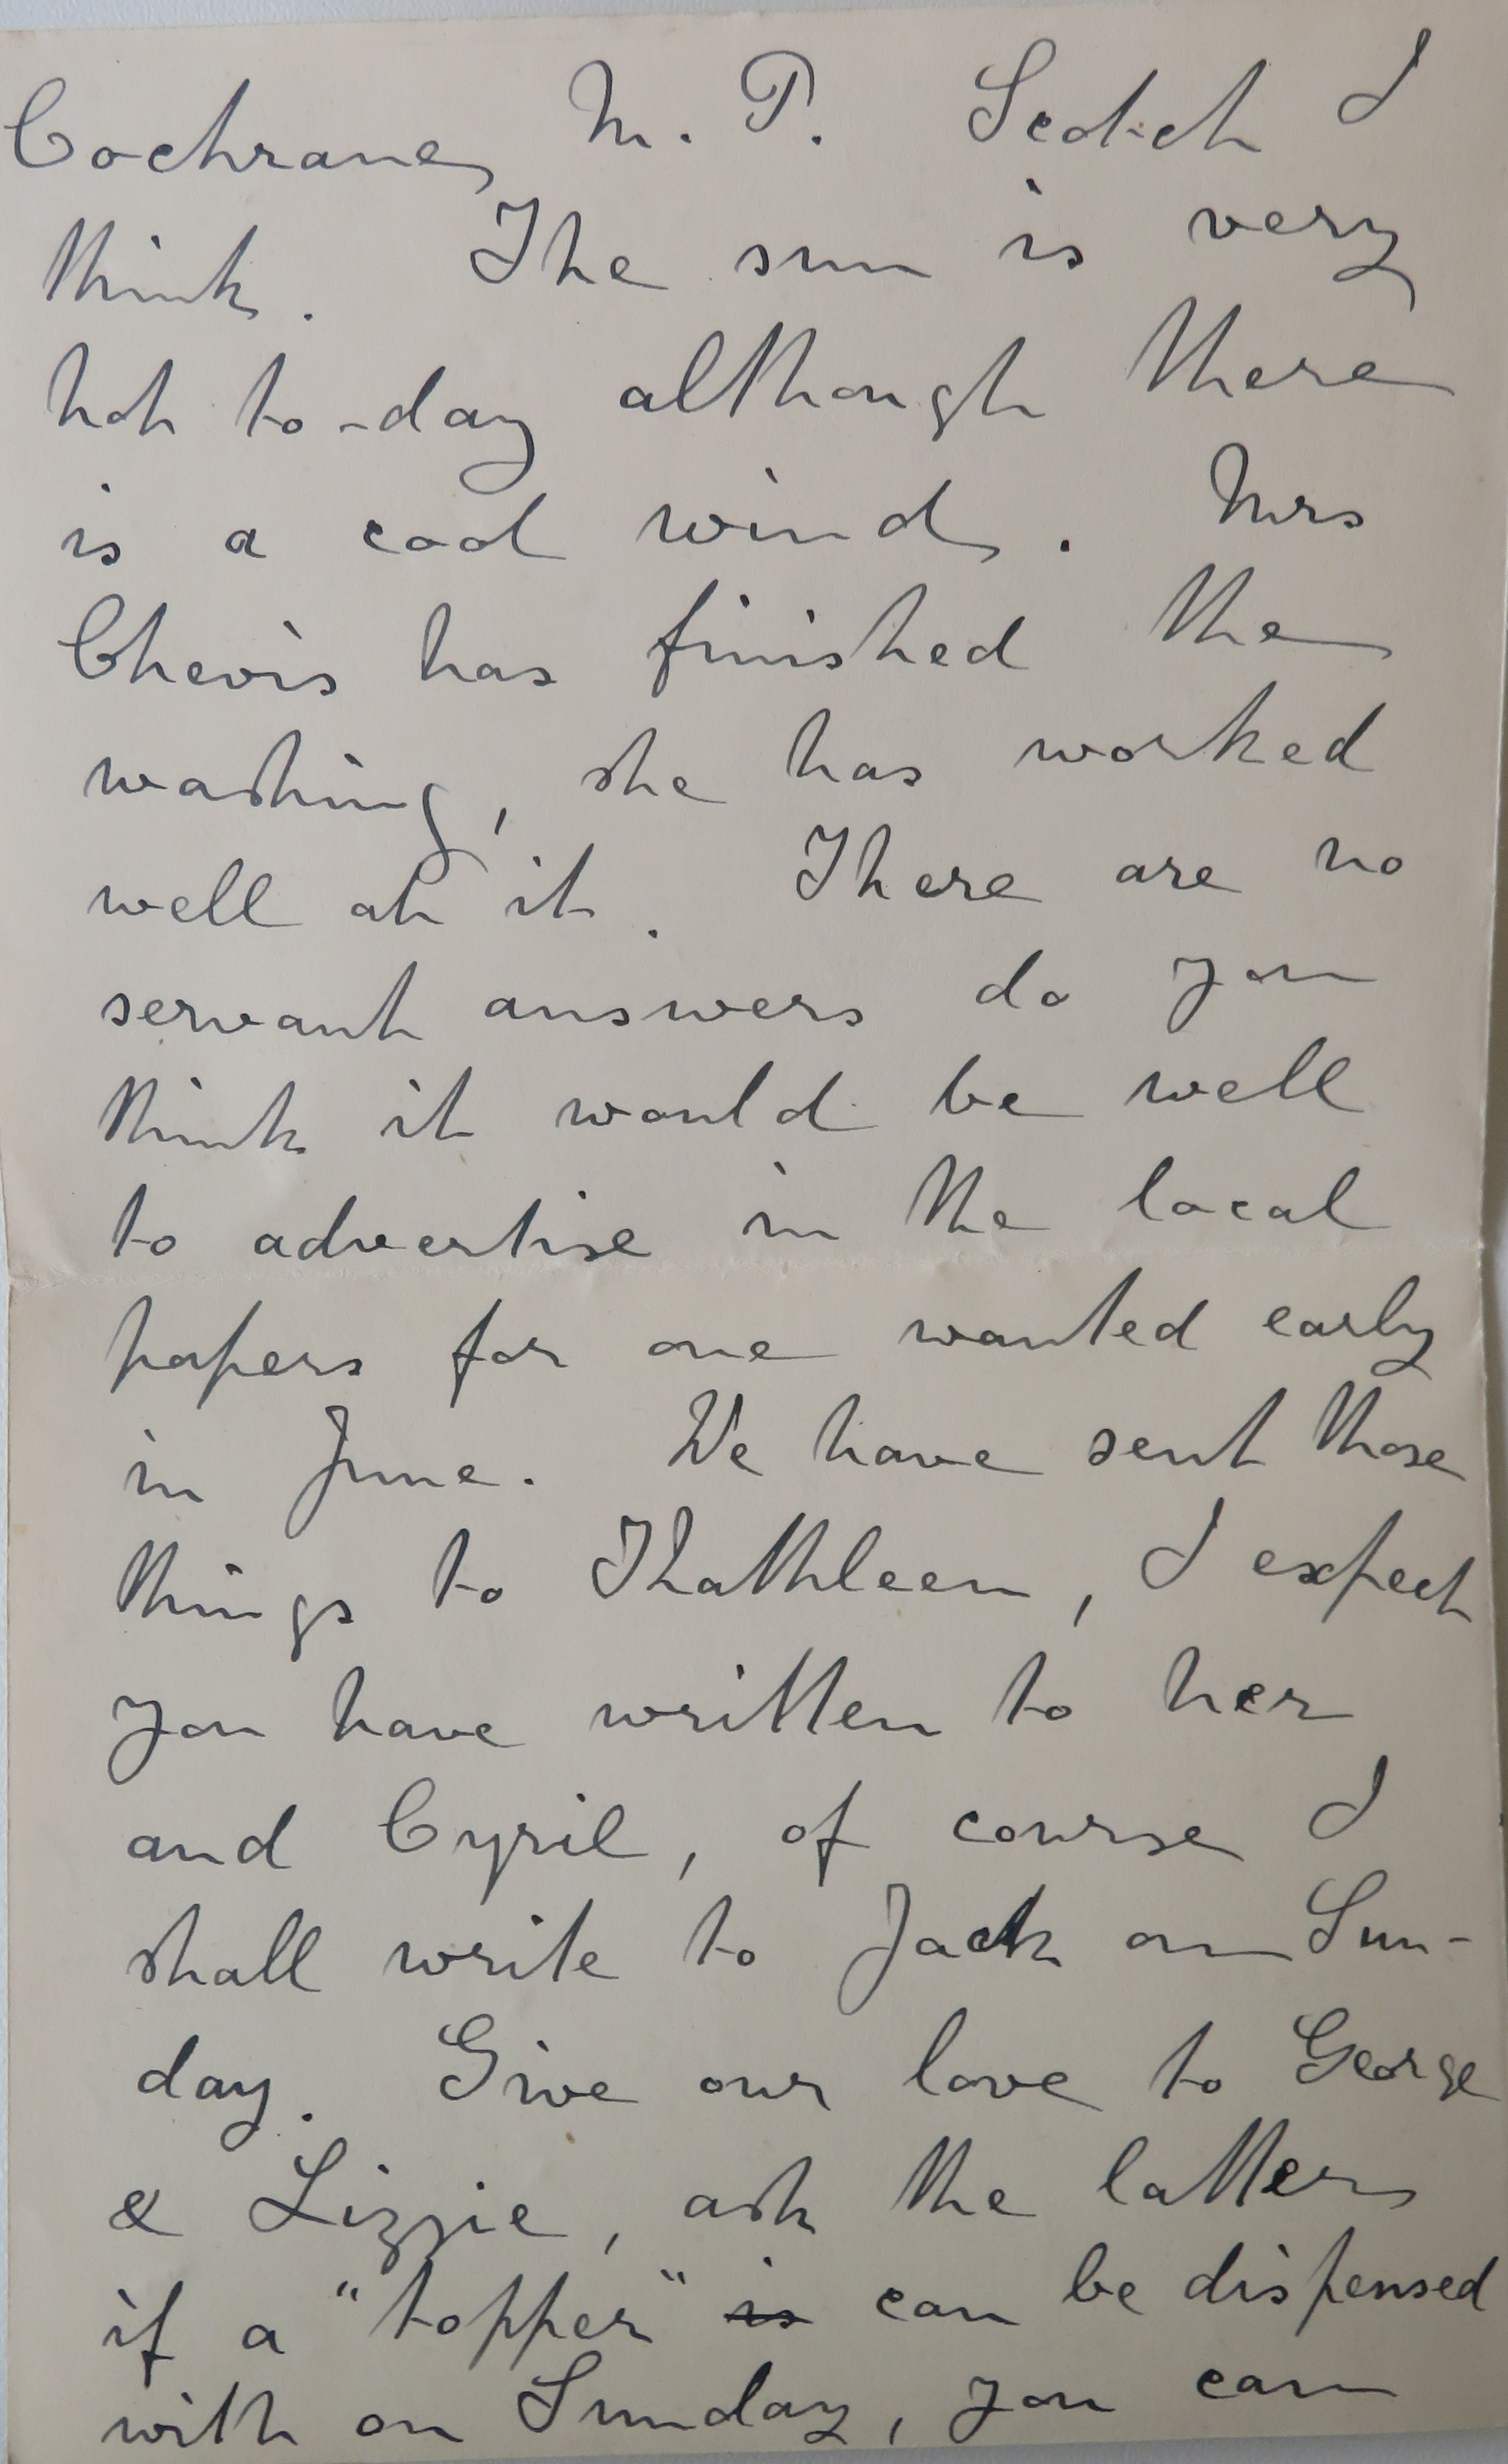 Cochrane, M. P. Scotch I
think. The sun is very
hot to-day although there
is a cool wind. Mrs
Chevis has finished the
washing, she has worked
well at it. There are no
servant answers do you
think it would be well
to advertise in the local
papers for one wanted early
in June. We have sent those
things to Kathleen, I expect
you have written to her
and Cyril, of course I
shall write to Jack on Sun-
day. Give our love to George
& Lizzie, ask the latter
if a "topper" is can be dispensed
with on Sunday, you can